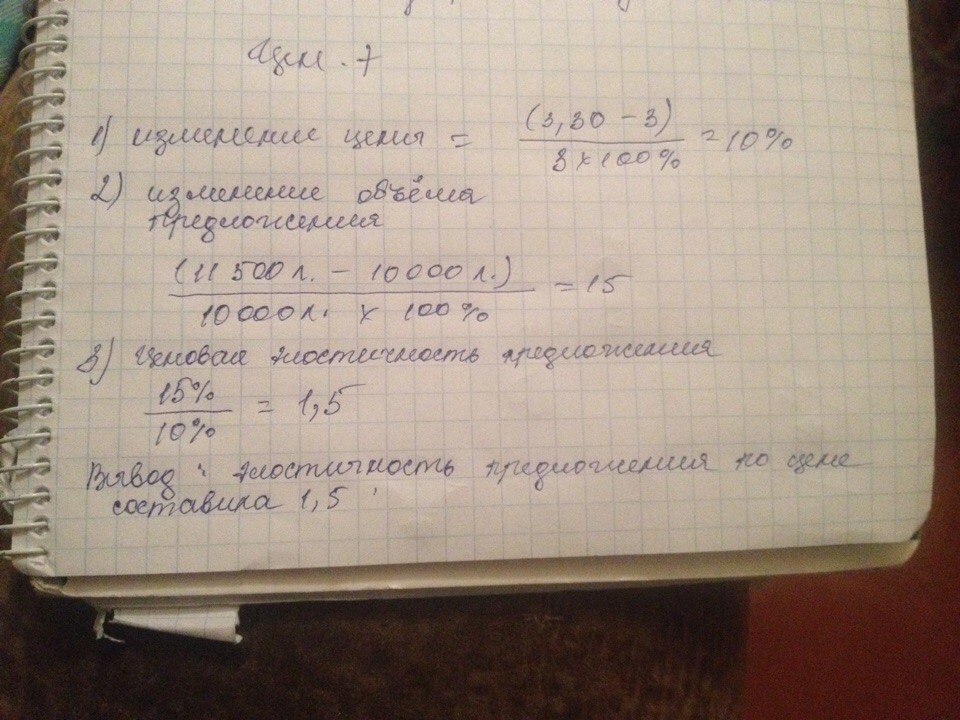 7
1) изменение цены = (3,30 - 3) / 3 x 100% = 10%
2) изменение объёма
предложения
(11 500 л. - 10000 л.) / 10000 л. x 100% = 15
3) Ценовая эластичность предложения
15% / 10% = 1,5
Вывод: эластичность предложения по цене
составила 1,5